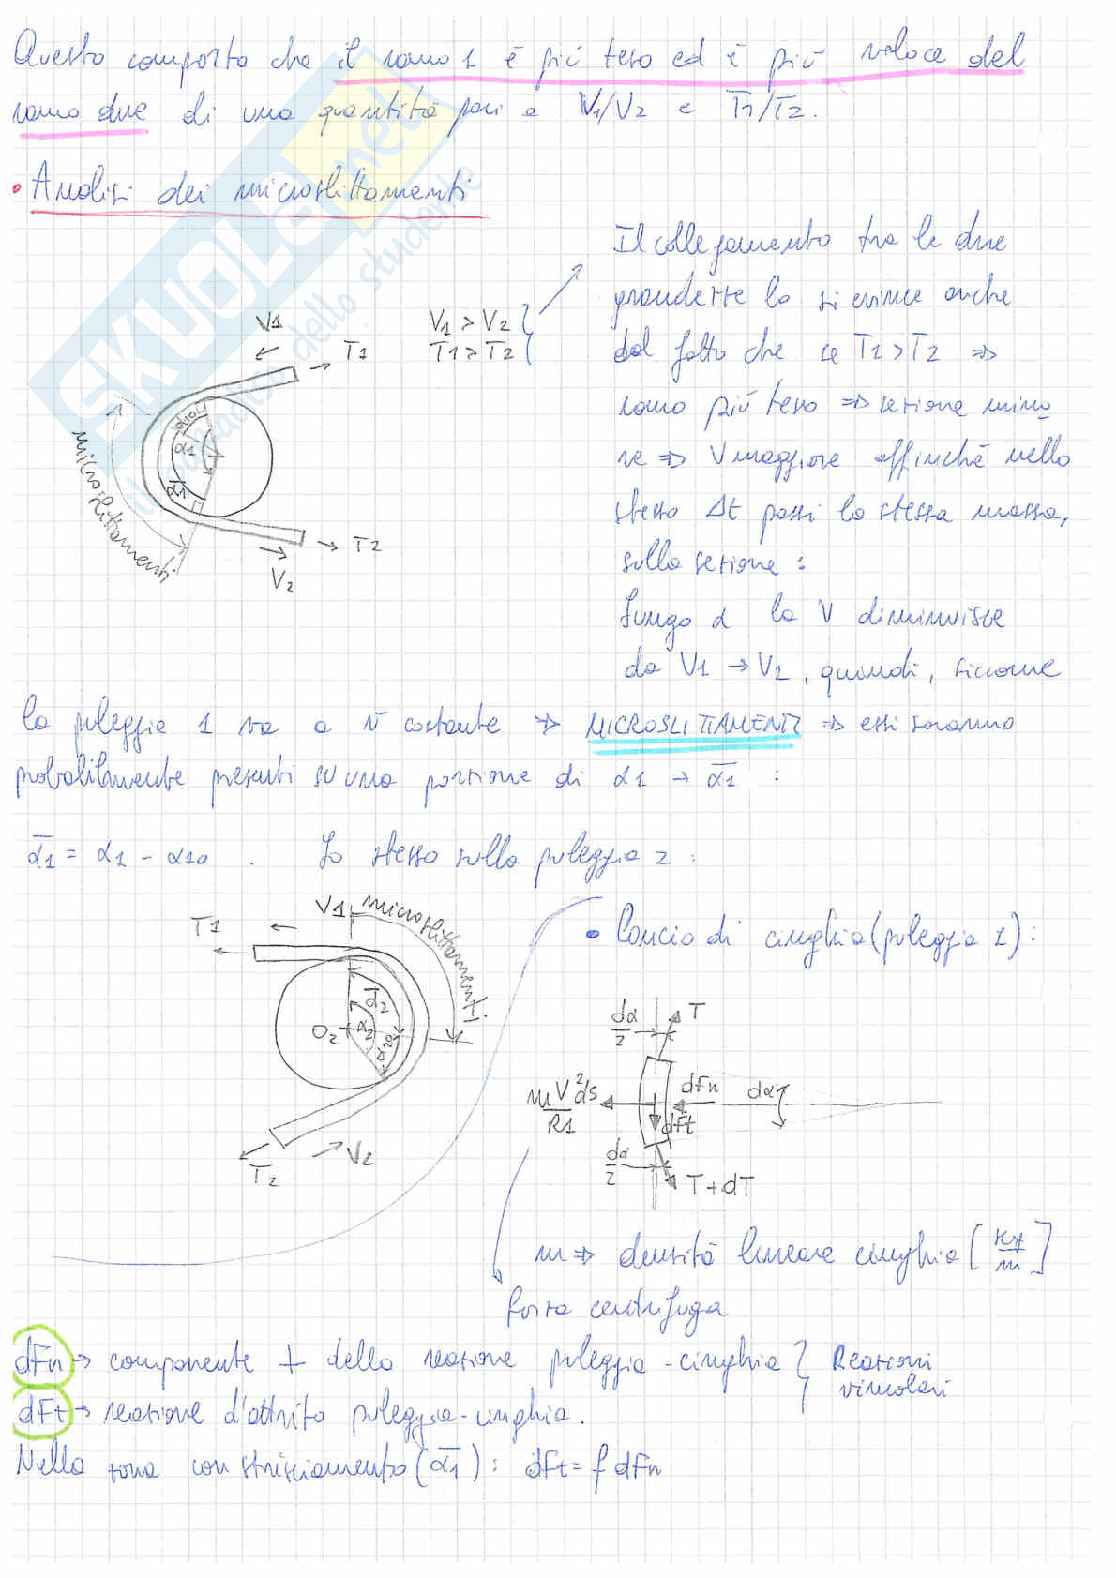 Questo comporta che il ramo 1 è più teso ed è più veloce del
ramo due di una quantità pari a V1/V2 e T1/T2.
• Analisi dei microslittamenti
Il collegamento tra le due
grandezze lo si evince anche
dal fatto che se T1 > T2 ⇒
ramo più teso ⇒ sezione mino
re ⇒ V maggiore affinché nello
stesso Δt passi la stessa massa,
sulla sezione :
lungo α la V diminuisce
da V1 → V2, quindi, siccome
V1
T1
V1 > V2
T1 > T2
α10
α1
α1
microslittamenti
T2
V2
la puleggia 1 va a v costante ⇒ MICROSLITTAMENTI ⇒ essi saranno
probabilmente presenti su una porzione di α1 → α̅1 :
α̅1 = α1 - α10 . Lo stesso sulla puleggia 2 :
T1
V1
microslittamenti
α̅2
O2
α2
α20
T2
V2
• Concio di cinghia (puleggia 1) :
dα/2
T
mV²ds/R1
dFn
dα
dFt
dα/2
T + dT
m ⇒ densità lineare cinghia [kg/m]
forza centrifuga
dFn → componente ⊥ della reazione puleggia - cinghia } Reazioni
vincolari
dFt → reazione d'attrito puleggia - cinghia.
Nella zona con strisciamento (α̅1) : dFt = f dFn
SKUOLA.net
dello studente